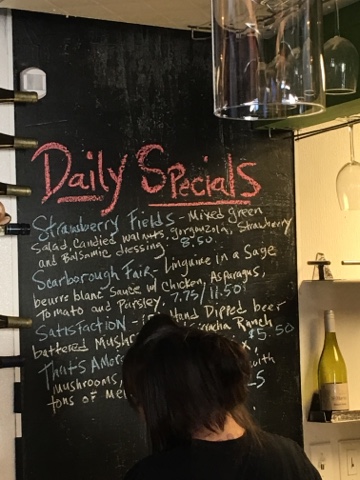 Daily Specials
Strawberry Fields - Mixed green
Salad, Candied walnuts, Gorgonzola, Strawberry
and Balsamic dressing. 8.50
Scarborough Fair - Linguine in a Sage
beurre blanc Sauce w/ Chicken, Asparagus,
Tomato and Parsley. 7.75/11.50
Satisfaction - Hand Dipped beer
battered Ranch
$5.50
That's Amore with
mushrooms,
tons of